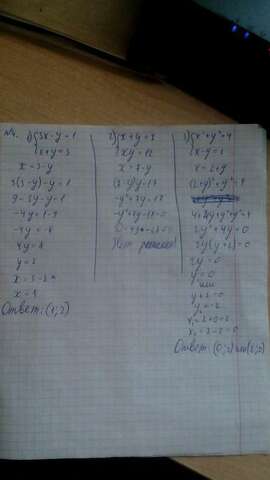 №4. 1) { 3x-y=1
x+y=3
x=3-y
3(3-y)-y=1
9-3y-y=1
-4y=1-9
-4y=-8
4y=8
y=2
x=3-2
x=1
Ответ: (1;2)
2) { x+y=7
xy=12
x=7-y
(7-y)y=12
-y²+7y=12
-y²+7y-12=0
Нет решений
3) { x²+y²=4
x-y=2
x=2+y
(2+y)²+y²=4
4+4y+y²+y²=4
2y²+4y=0
2y(y+2)=0
2y=0
y=0
или
y+2=0
y=-2
x₁=2+0=2
x₂=2-2=0
Ответ: (0;-2) или (2;0)